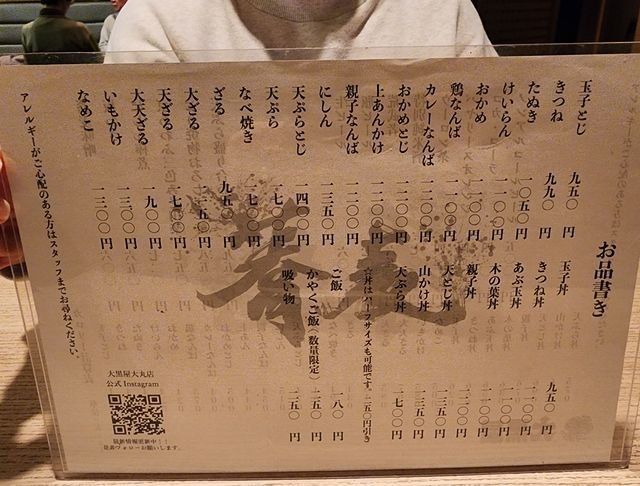 お品書き
玉子とじ 九五〇円
きつね 九九〇円
たぬき 一〇五〇円
けいらん 一一〇〇円
おかめ 一一〇〇円
鶏なんば 一一〇〇円
カレーなんば 一二〇〇円
おかめとじ 一二〇〇円
上あんかけ 一二〇〇円
親子なんば
にしん 一三五〇円
天ぷらとじ
天ぷら 一七〇〇円
なべ焼き 一七〇〇円
ざる 九五〇円
大ざる
天ざる 一七〇〇円
大天ざる 一九〇〇円
いもかけ 一三〇〇円
なめこ 一三〇〇円
玉子丼 九五〇円
きつね丼 一一〇〇円
あぶ玉丼 一一〇〇円
木の葉丼 一一〇〇円
親子丼 一二〇〇円
天とじ丼 一三五〇円
山かけ丼 一三五〇円
天ぷら丼 一七〇〇円
☆丼はハーフサイズも可能です。二五〇円引き
ご飯 一八〇円
かやくご飯(数量限定) 二五〇円
吸い物 二五〇円
アレルギーがご心配のある方はスタッフまでお尋ねください。
大黒屋大丸店
公式 Instagram
最新情報更新中！！
是非フォローお願いします。